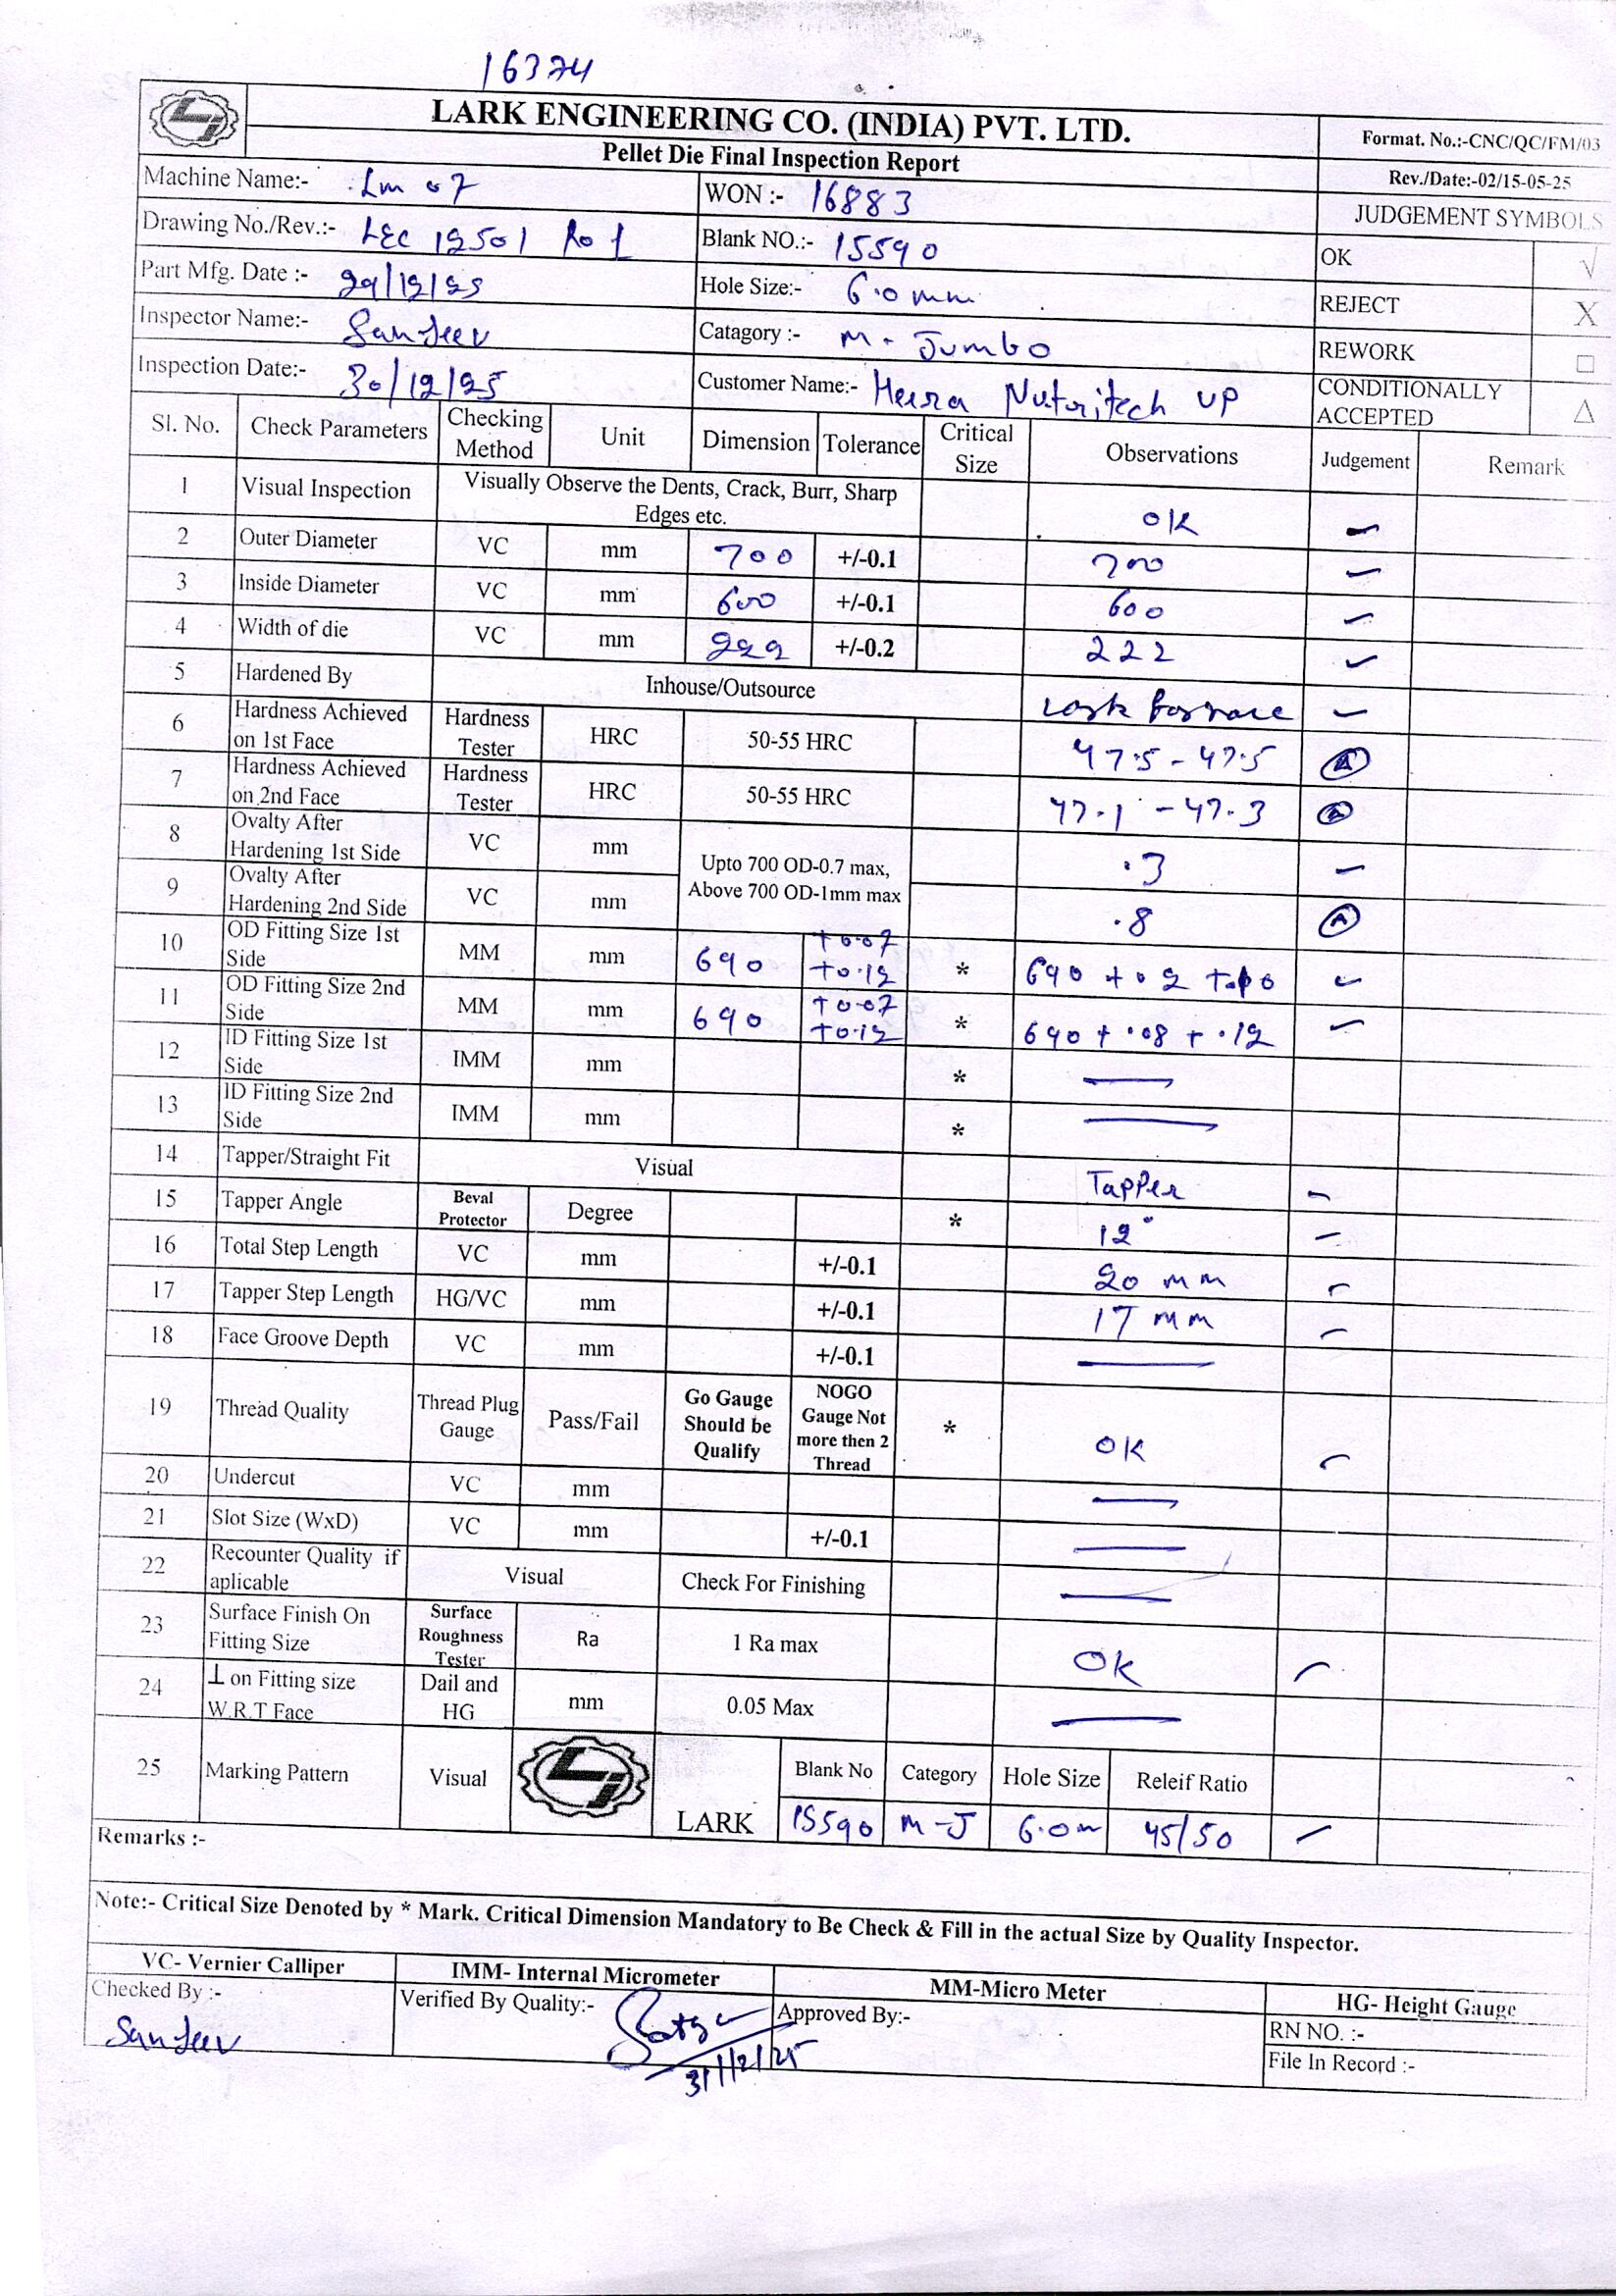 16374
LARK ENGINEERING CO. (INDIA) PVT. LTD.
Pellet Die Final Inspection Report
Format. No.:-CNC/QC/FM/03
Rev./Date:-02/15-05-25
Machine Name:- Lm 07
WON :- 16883
JUDGEMENT SYMBOLS
Drawing No./Rev.:- LEC 12501 R01
Blank NO.:- 15590
OK √
Part Mfg. Date :- 29/12/25
Hole Size:- 6.0 mm
REJECT X
Inspector Name:- SanJeev
Catagory :- M - Jumbo
REWORK □
Inspection Date:- 30/12/25
Customer Name:- Heera Nutritech UP
CONDITIONALLY ACCEPTED △
Sl. No. Check Parameters Checking Method Unit Dimension Tolerance Critical Size Observations Judgement Remark
1 Visual Inspection Visually Observe the Dents, Crack, Burr, Sharp Edges etc. OK
2 Outer Diameter VC mm 700 +/-0.1 700
3 Inside Diameter VC mm 600 +/-0.1 600
4 Width of die VC mm 222 +/-0.2 222
5 Hardened By Inhouse/Outsource Lark
6 Hardness Achieved on 1st Face Hardness Tester HRC 50-55 HRC 47.5 - 47.5
7 Hardness Achieved on 2nd Face Hardness Tester HRC 50-55 HRC 47.1 - 47.3
8 Ovalty After Hardening 1st Side VC mm Upto 700 OD-0.7 max, Above 700 OD-1mm max .3
9 Ovalty After Hardening 2nd Side VC mm .8
10 OD Fitting Size 1st Side MM mm 690 +0.07 +0.12 * 690
11 OD Fitting Size 2nd Side MM mm 690 +0.07 +0.12 * 690 + .08 + .12
12 ID Fitting Size 1st Side IMM mm *
13 ID Fitting Size 2nd Side IMM mm *
14 Tapper/Straight Fit Visual Tapper
15 Tapper Angle Beval Protector Degree * 12°
16 Total Step Length VC mm +/-0.1 20 mm
17 Tapper Step Length HG/VC mm +/-0.1 17 mm
18 Face Groove Depth VC mm +/-0.1
19 Thread Quality Thread Plug Gauge Pass/Fail Go Gauge Should be Qualify NOGO Gauge Not more then 2 Thread * OK
20 Undercut VC mm
21 Slot Size (WxD) VC mm +/-0.1
22 Recounter Quality if aplicable Visual Check For Finishing
23 Surface Finish On Fitting Size Surface Roughness Tester Ra 1 Ra max OK
24 ⊥ on Fitting size W.R.T Face Dail and HG mm 0.05 Max
25 Marking Pattern Visual LARK Blank No Category Hole Size Releif Ratio
15590 M-J 6.0m 45/50
Remarks :-
Note:- Critical Size Denoted by * Mark. Critical Dimension Mandatory to Be Check & Fill in the actual Size by Quality Inspector.
VC- Vernier Calliper IMM- Internal Micrometer MM-Micro Meter HG- Height Gauge
Checked By :- SanJeev
Verified By Quality:- 31/12/25
Approved By:-
RN NO. :-
File In Record :-